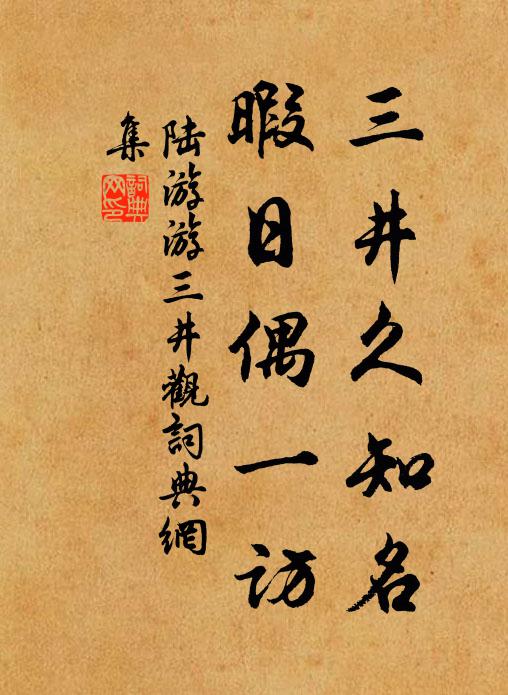 三井久知名
暇日偶一访
陆游游三井觀詞典網
集
詞典
网印